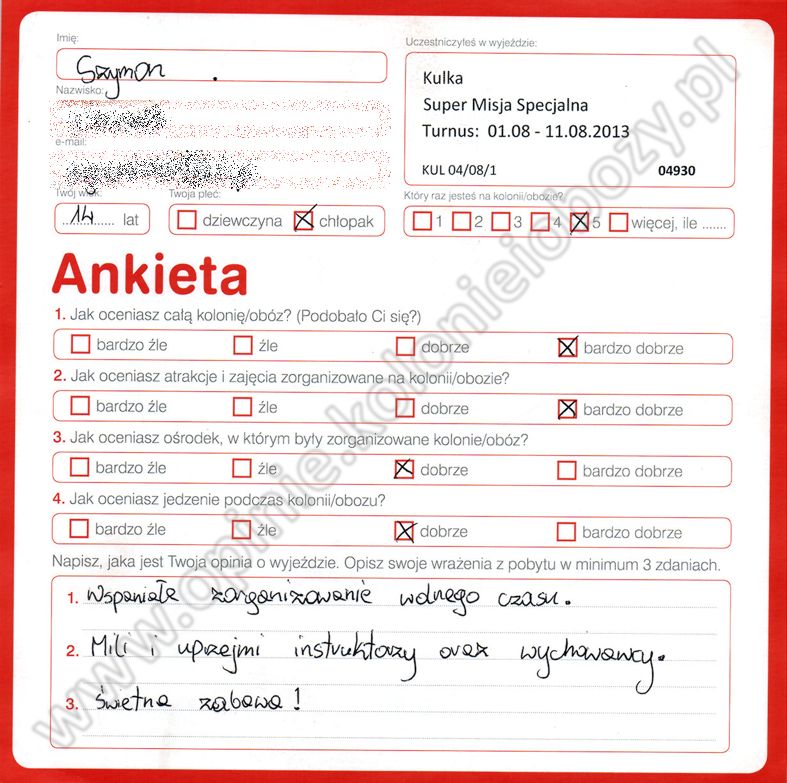 Imię:
Szymon .
Nazwisko:
e-mail:
Twój wiek:
14 lat
Twoja płeć:
dziewczyna chłopak
Uczestniczyłeś w wyjeździe:
Kulka
Super Misja Specjalna
Turnus: 01.08 - 11.08.2013
KUL 04/08/1 04930
Który raz jesteś na kolonii/obozie?
1 2 3 4 5 więcej, ile .......
Ankieta
1. Jak oceniasz całą kolonię/obóz? (Podobało Ci się?)
bardzo źle źle dobrze bardzo dobrze
2. Jak oceniasz atrakcje i zajęcia zorganizowane na kolonii/obozie?
bardzo źle źle dobrze bardzo dobrze
3. Jak oceniasz ośrodek, w którym były zorganizowane kolonie/obóz?
bardzo źle źle dobrze bardzo dobrze
4. Jak oceniasz jedzenie podczas kolonii/obozu?
bardzo źle źle dobrze bardzo dobrze
Napisz, jaka jest Twoja opinia o wyjeździe. Opisz swoje wrażenia z pobytu w minimum 3 zdaniach.
1. Wspaniałe zorganizowanie wolnego czasu.
2. Mili i uprzejmi instruktorzy oraz wychowawcy.
3. Świetna zabawa!
www.opinie.kolonieiobozy.pl